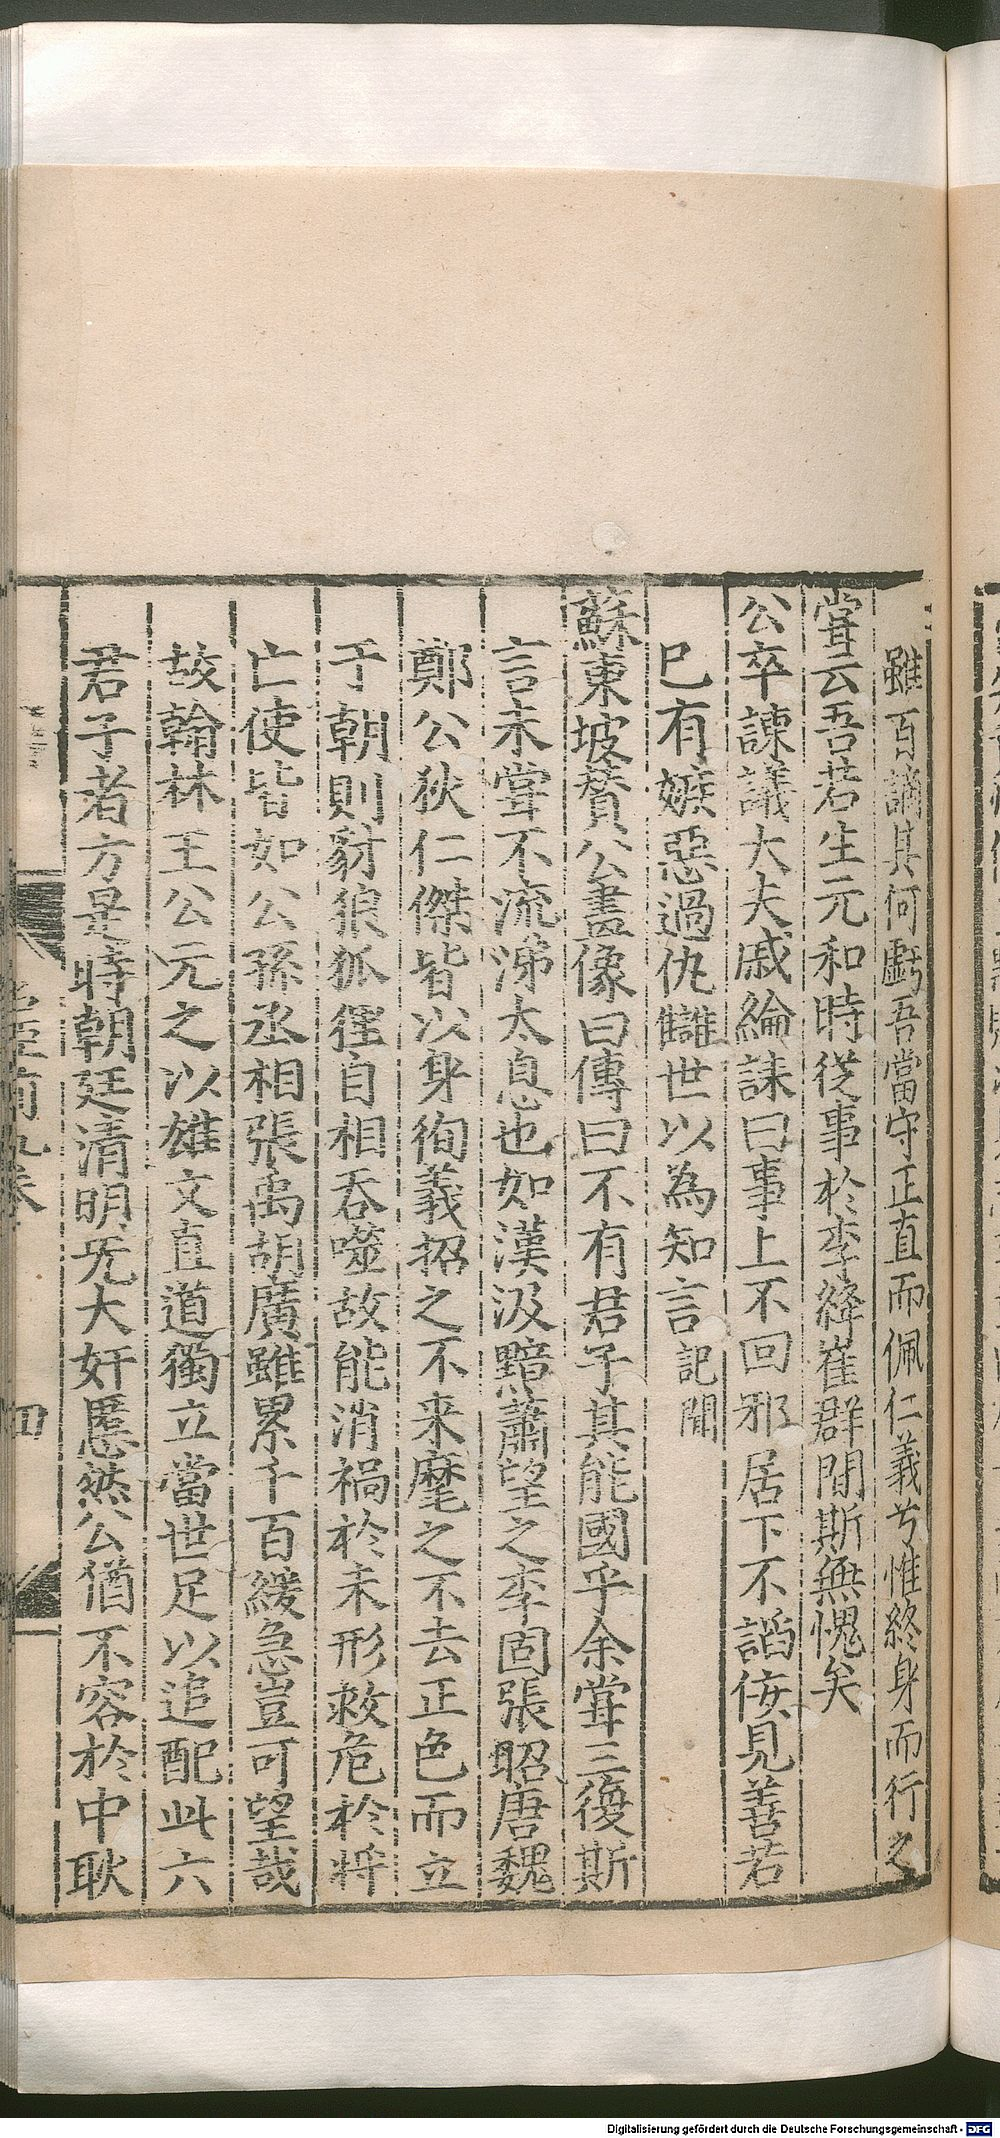 雖百謫其何虧吾當守正直而佩仁義兮惟終身而行之
嘗云吾若生元和時從事於李絳崔群間斯無愧矣
公卒諫議大夫戚綸誄曰事上不回邪居下不諂佞見善若
己有嫉惡過仇讎世以為知言記聞
蘇東坡賛公畫像曰傳曰不有君子其能國乎余嘗三復斯
言未嘗不流涕太息也如漢汲黯蕭望之李固張昭唐魏
鄭公狄仁傑皆以身徇義招之不来麾之不去正色而立
于朝則豺狼狐狸自相吞噬故能消禍於未形救危於将
亡使皆如公孫丞相張禹胡廣雖累千百緩急豈可望哉
故翰林王公元之以雄文直道獨立當世足以追配此六
君子者方是時朝廷清明无大奸慝然公猶不容於中耿
名臣前九卷
四
Digitalisierung gefördert durch die Deutsche Forschungsgemeinschaft - DFG